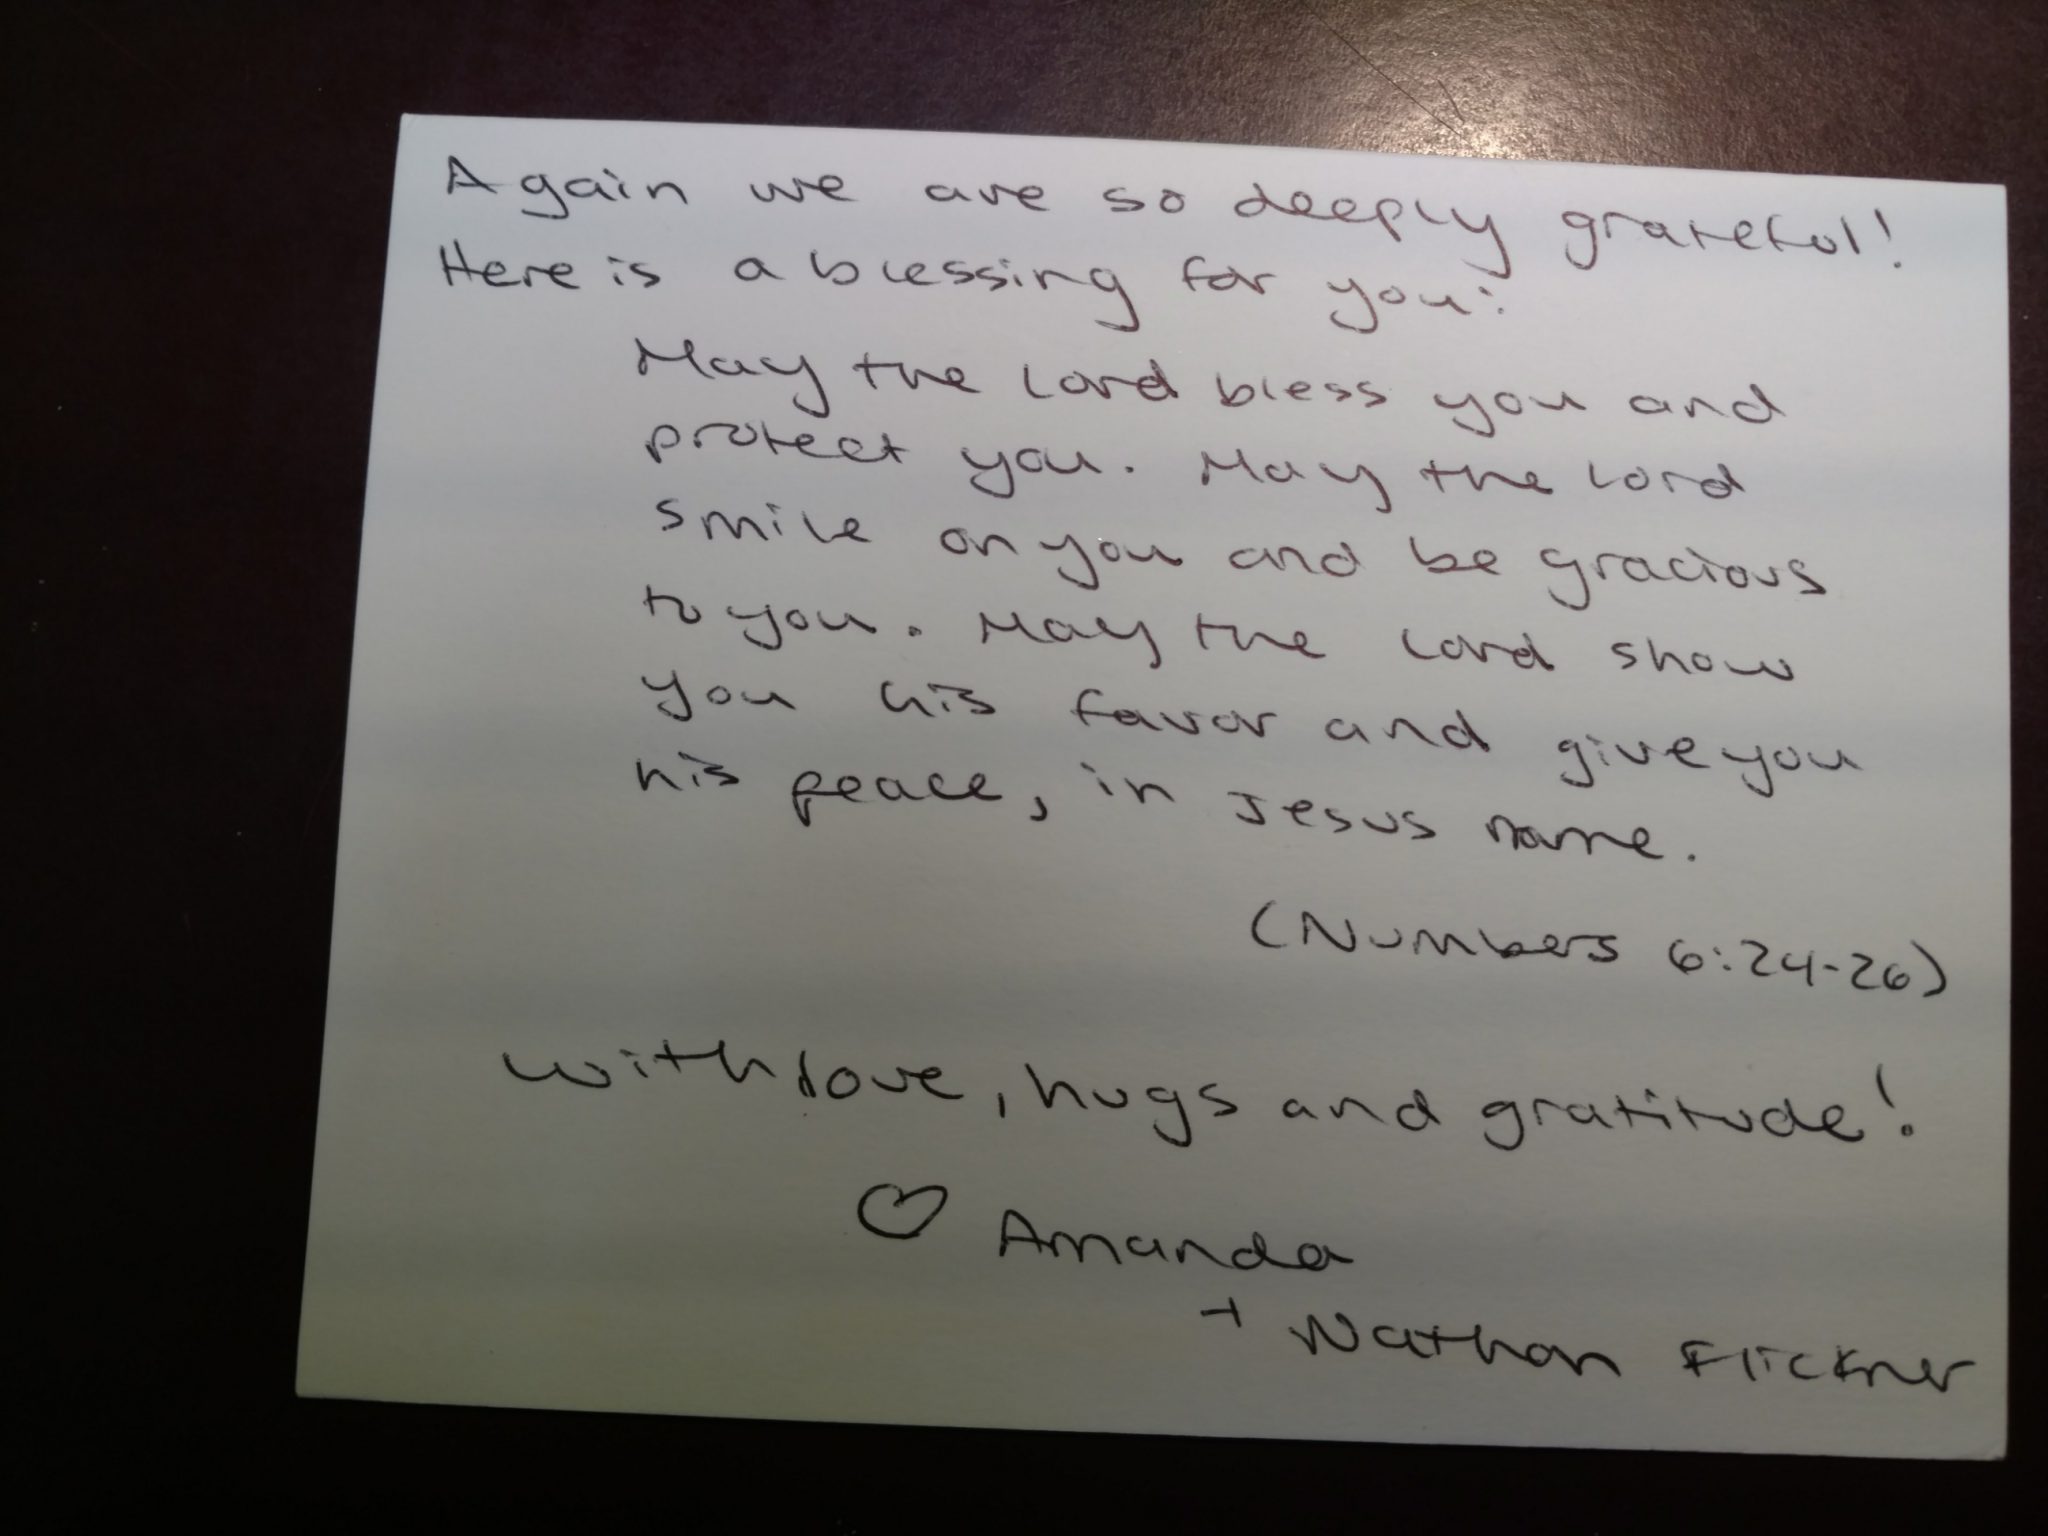 Again we are so deeply grateful!
Here is a blessing for you:
May the Lord bless you and
protect you. May the Lord
smile on you and be gracious
to you. May the Lord show
you his favor and give you
his peace, in Jesus name.
(Numbers 6:24-26)
With love, hugs and gratitude!
♡ Amanda
+ Nathan Flickner